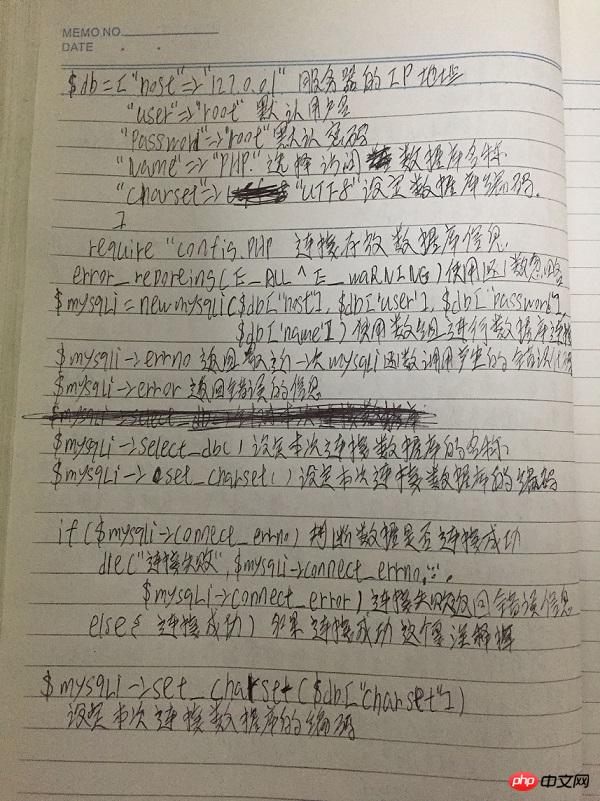 MEMO NO.
DATE
$db=["host"=>"127.0.0.1" 服务器的IP地址
"user"=>"root" 默认用户名
"Password"=>"root" 默认密码
"Name"=>"PHP" 选择访问 数据库名称
"charset"=> "UTF8" 设定数据库编码.
]
require "config.PHP 连接存放数据库信息
error_reporting(E_ALL ^ E_WARNING) 使用函数忽略
$mysqli=new mysqli($db['host'], $db['user'], $db['password'],
$db['name']) 使用数组进行数据库连接
$mysqli->errno 返回最近一次mysqli函数调用产生的错误代码
$mysqli->error 返回错误的信息
$mysqli->select_db() 设定本次连接数据库的名称
$mysqli->set_charset() 设定本次连接数据库的编码
if($mysqli->connect_errno) 判断数据是否连接成功
die("连接失败",$mysqli->connect_errno.":".
$mysqli->connect_error) 连接失败返回错误信息
else{ 连接成功) 如果连接成功这个注释掉
$mysqli->set_charset($db["charset"])
设定本次连接数据库的编码
php中文网